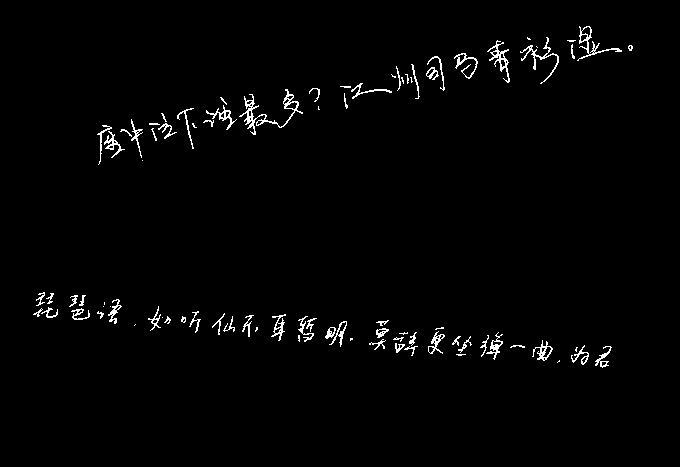 座中泣下谁最多?江州司马青衫湿。
琵琶语,如听仙乐耳暂明.莫辞更坐弹一曲,为君